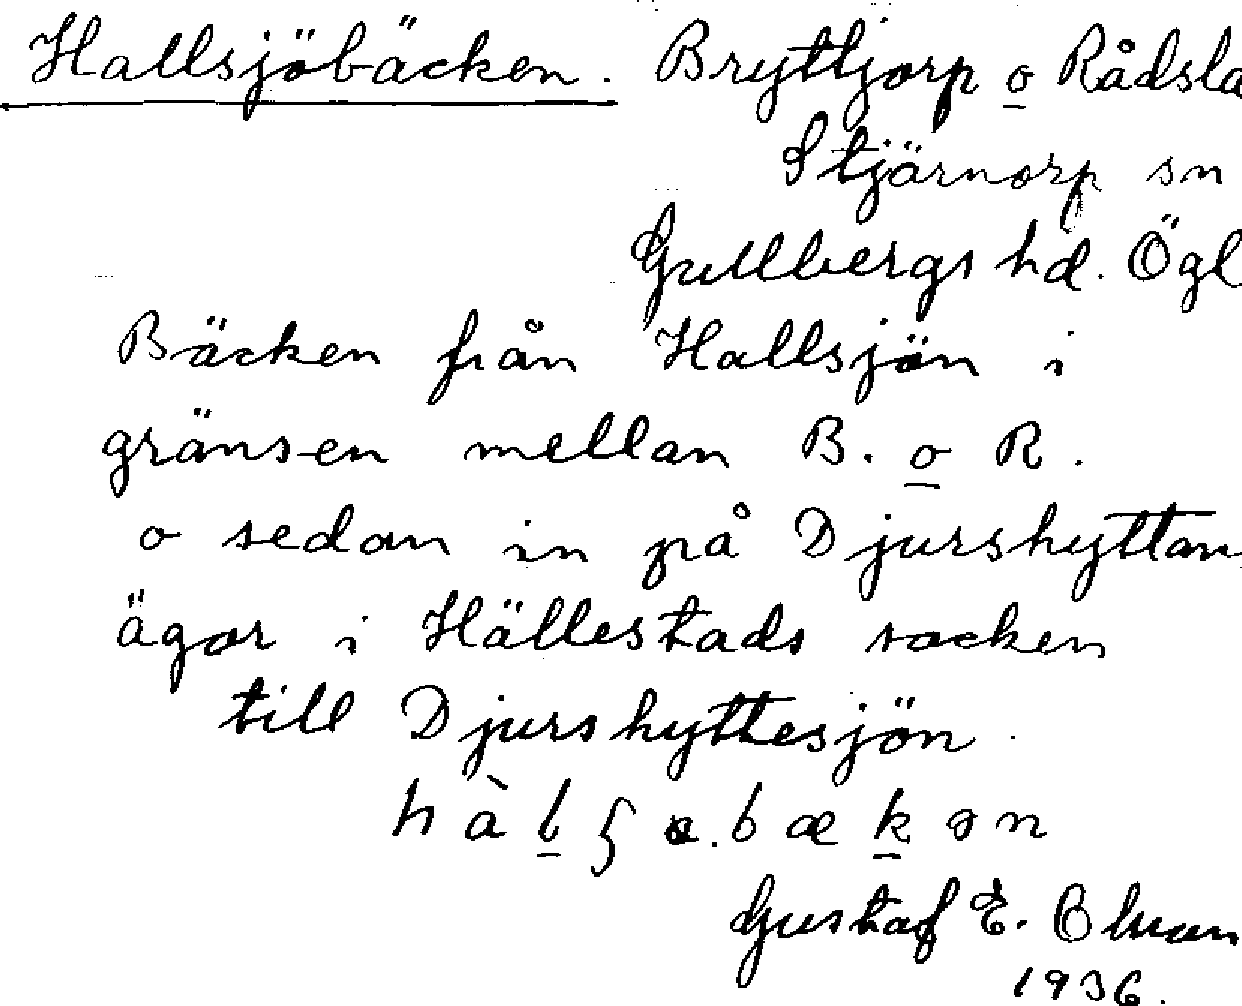 Hallsjöbäcken. Bryttjorp o Rådsla
Stjärnorp sn
Gullbergs hd. Ögl
Bäcken från Hallsjön i
gränsen mellan B. o R.
o sedan in på Djurshyttan
ägor i Hällestads socken
till Djurshyttesjön.
Gustaf E.
1936.